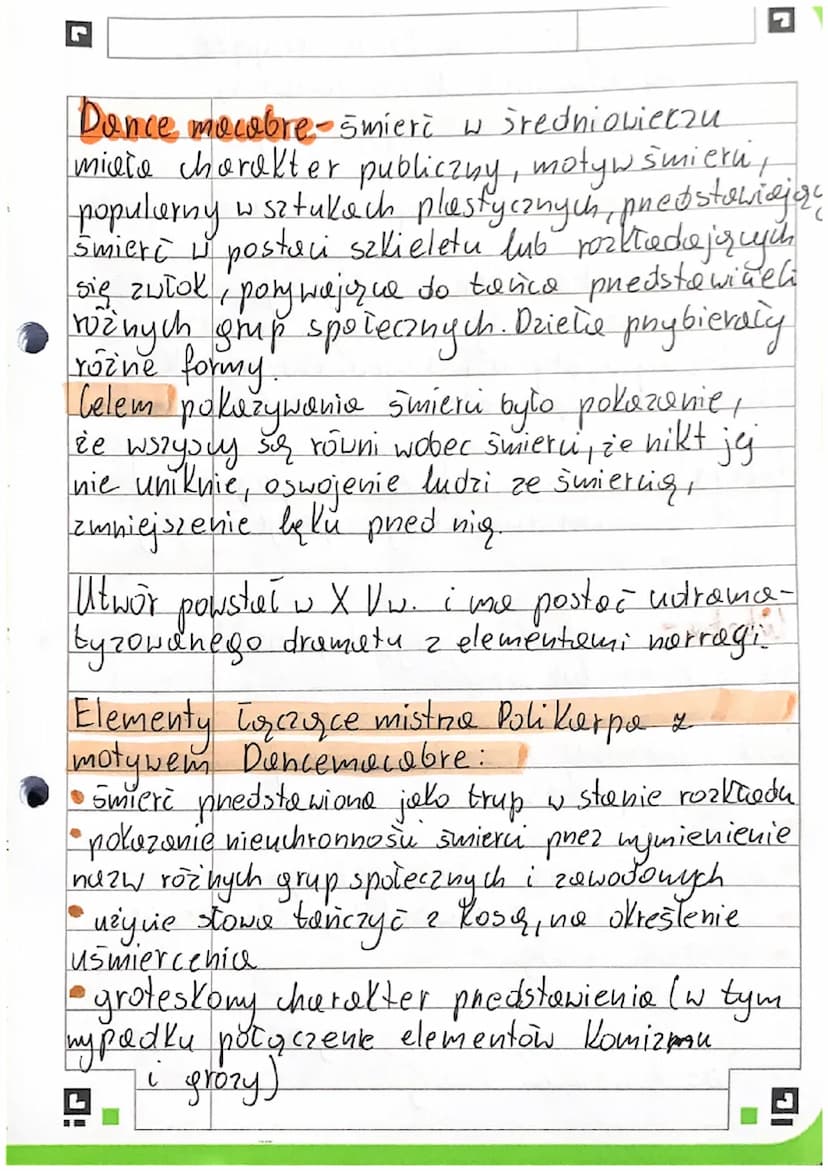 Dance macabre - śmierć w średniowieczu
miała charakter publiczny, motyw śmierci,
popularny w sztukach plastycznych, przedstawiając
śmierć w postaci szkieletu lub rozkładających
się zwłok, porywająca do tańca przedstawicieli
różnych grup społecznych. Dzieła przybierały
różne formy.
Celem pokazywania śmierci było pokazanie,
że wszyscy są równi wobec śmierci, że nikt jej
nie uniknie, oswojenie ludzi ze śmiercią,
zmniejszenie lęku przed nią.
Utwór powstał w XVw. i ma postać udrama-
tyzowanego dramatu z elementami narracji.
Elementy łączące mistrza Polikarpa z
motywem Dancemacabre:
• śmierć przedstawiona jako trup w stanie rozkładu
• pokazanie nieuchronności śmierci przez wymienienie
nazw różnych grup społecznych i zawodowych
• użycie słowa tańczyć z kosą, na określenie
uśmiercenia
• groteskowy charakter przedstawienia (w tym
wypadku połączenie elementów komizmu
i grozy)